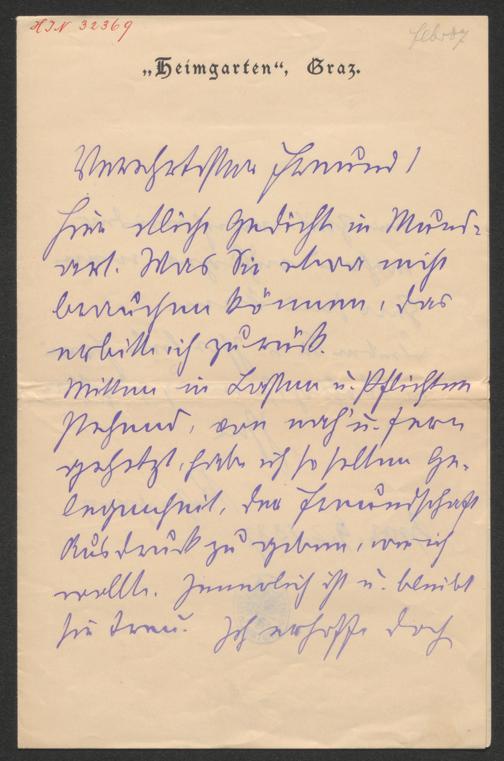 HIN 32369
febr 87
„Heimgarten“, Graz.
Verehrtester Freund!
Hier etliche Gedichte in Mund-
art. Was Sie etwa nicht
brauchen können, das
erbitte ich zurück.
Mitten in Lasten u. Pflichten
stehend, von nah' u. fern
gehetzt, habe ich so selten Ge-
legenheit, der Freundschaft
Ausdruck zu geben, wie ich
wollte. Innerlich ist u. bleibt
sie treu. Ich erhoffe doch